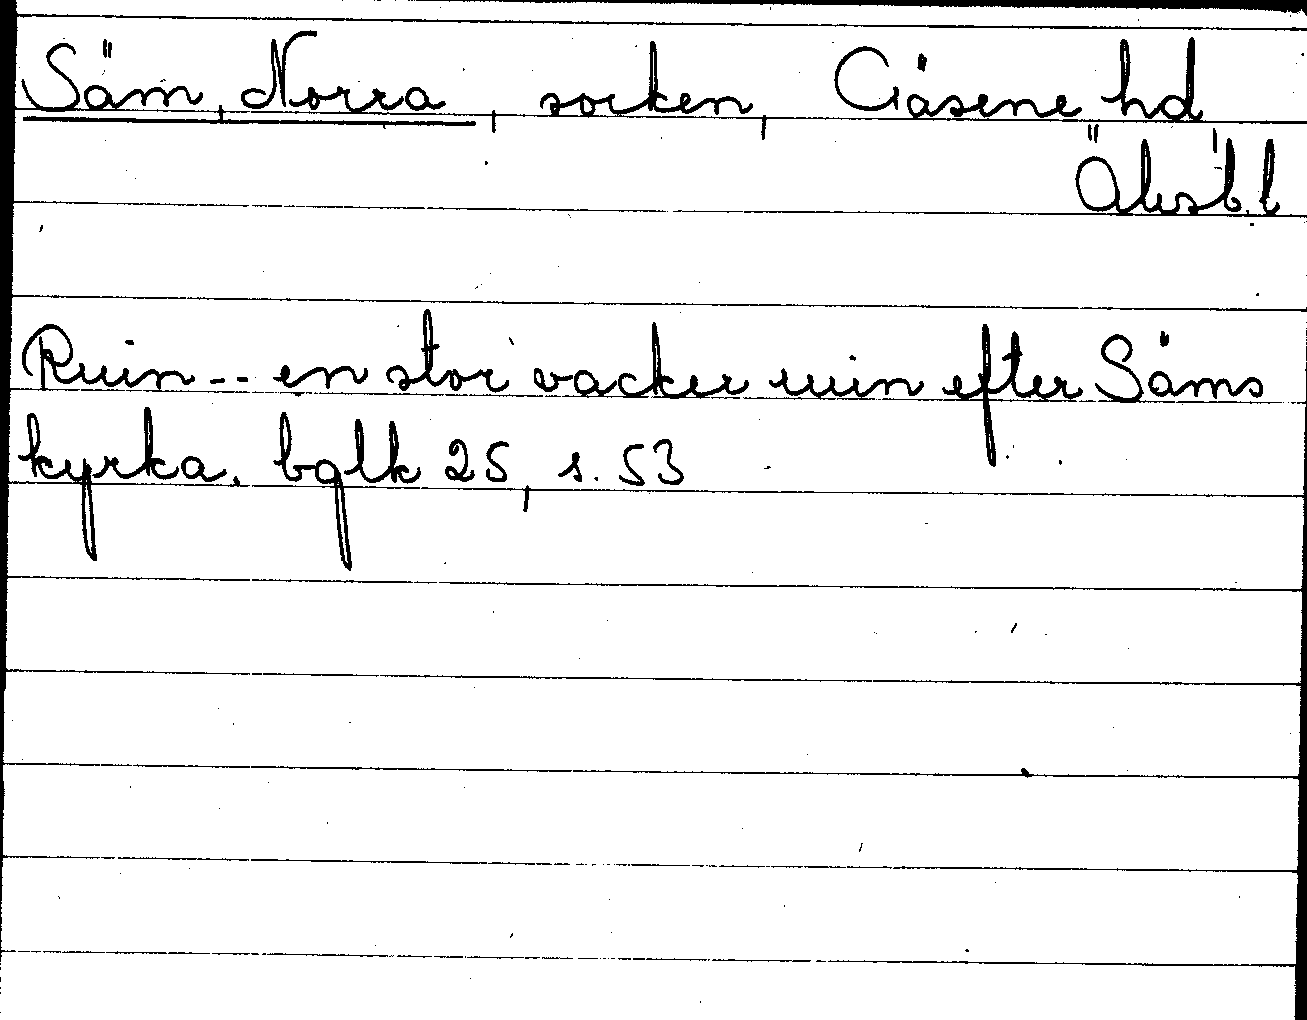 Säm, Norra, socken, Gäsene hd
Älvsb. l
Ruin -- en stor vacker ruin efter Säms
kyrka. bglk 25, s. 53